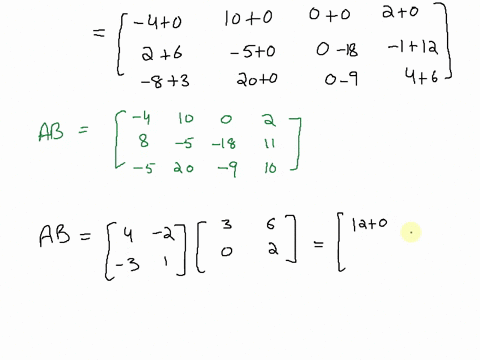 = [ -4+0 10+0 0+0 2+0
2+6 -5+0 0-18 -1+12
-8+3 20+0 0-9 4+6 ]
AB = [ -4 10 0 2
8 -5 -18 11
-5 20 -9 10 ]
AB = [ 4 -2 [ 3 6 = [ 12+0
-3 1 ] 0 2 ]